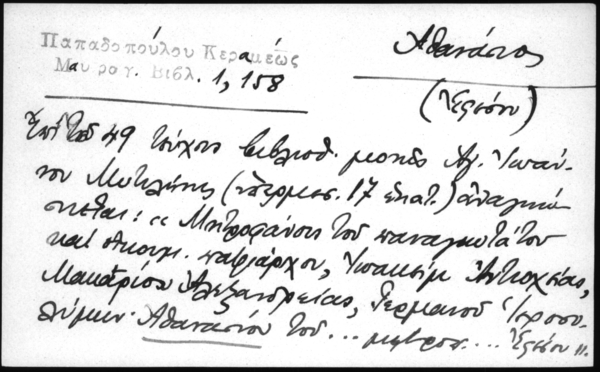 Παπαδοπούλου Κεραμέως
Μαυρογ. Βιβλ. 1, 158
Ἀθανάσιος
(Ἐφέσου)
Ἐπὶ τοῦ 49 τεύχους βιβλιοθ. μονῆς Ἁγ. Ἰωάν-
νου Μυτιλήνης (ὑπερμεσ. 17 ἑκατ.) ἀναγινώ-
σκεται: «Μητροφάνους τοῦ παναγιωτάτου
καὶ οἰκουμ. πατριάρχου, Ἰωακεὶμ Ἀντιοχείας,
Μακαρίου Ἀλεξανδρείας, Γερμανοῦ Ἱεροσο-
λύμων. Ἀθανασίου τοῦ ... μητροπ.... Ἐφέσου».